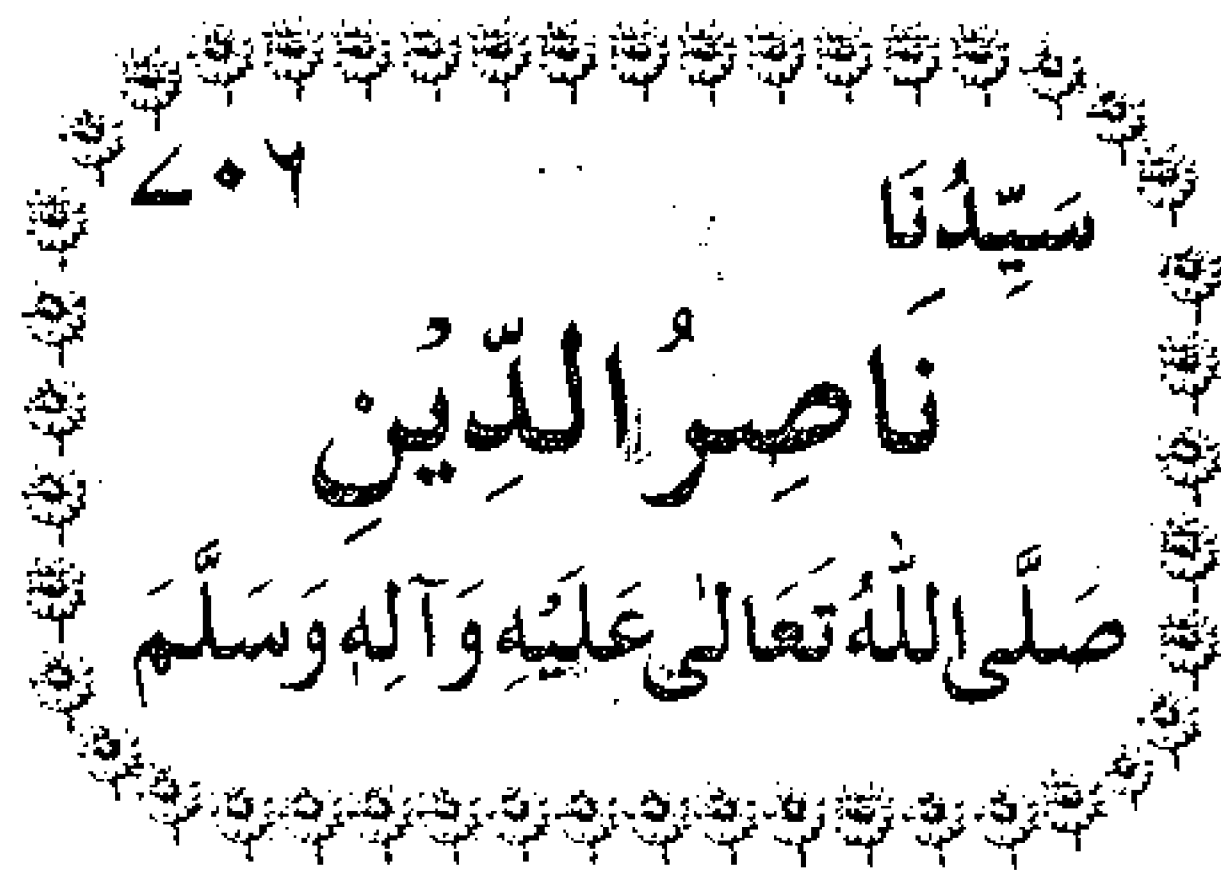 سَيِّدُنَا ۷۰۶
نَاصِرُ الدِّيْنِ
صَلَّى اللّٰهُ تَعَالٰى عَلَيْهِ وَآلِهٖ وَسَلَّمَ